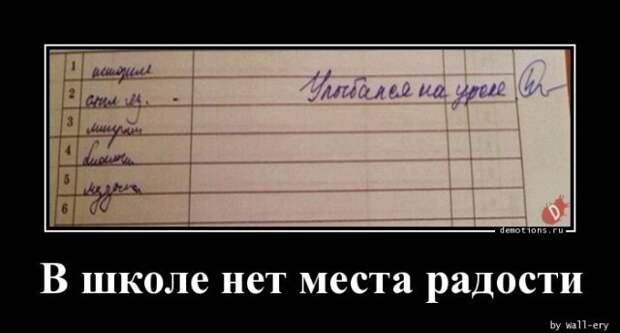 1 история
2 англ яз. - Улыбался на уроке
3
4 биология
5 музыка
6
demotions.ru
В школе нет места радости
by wall-ery